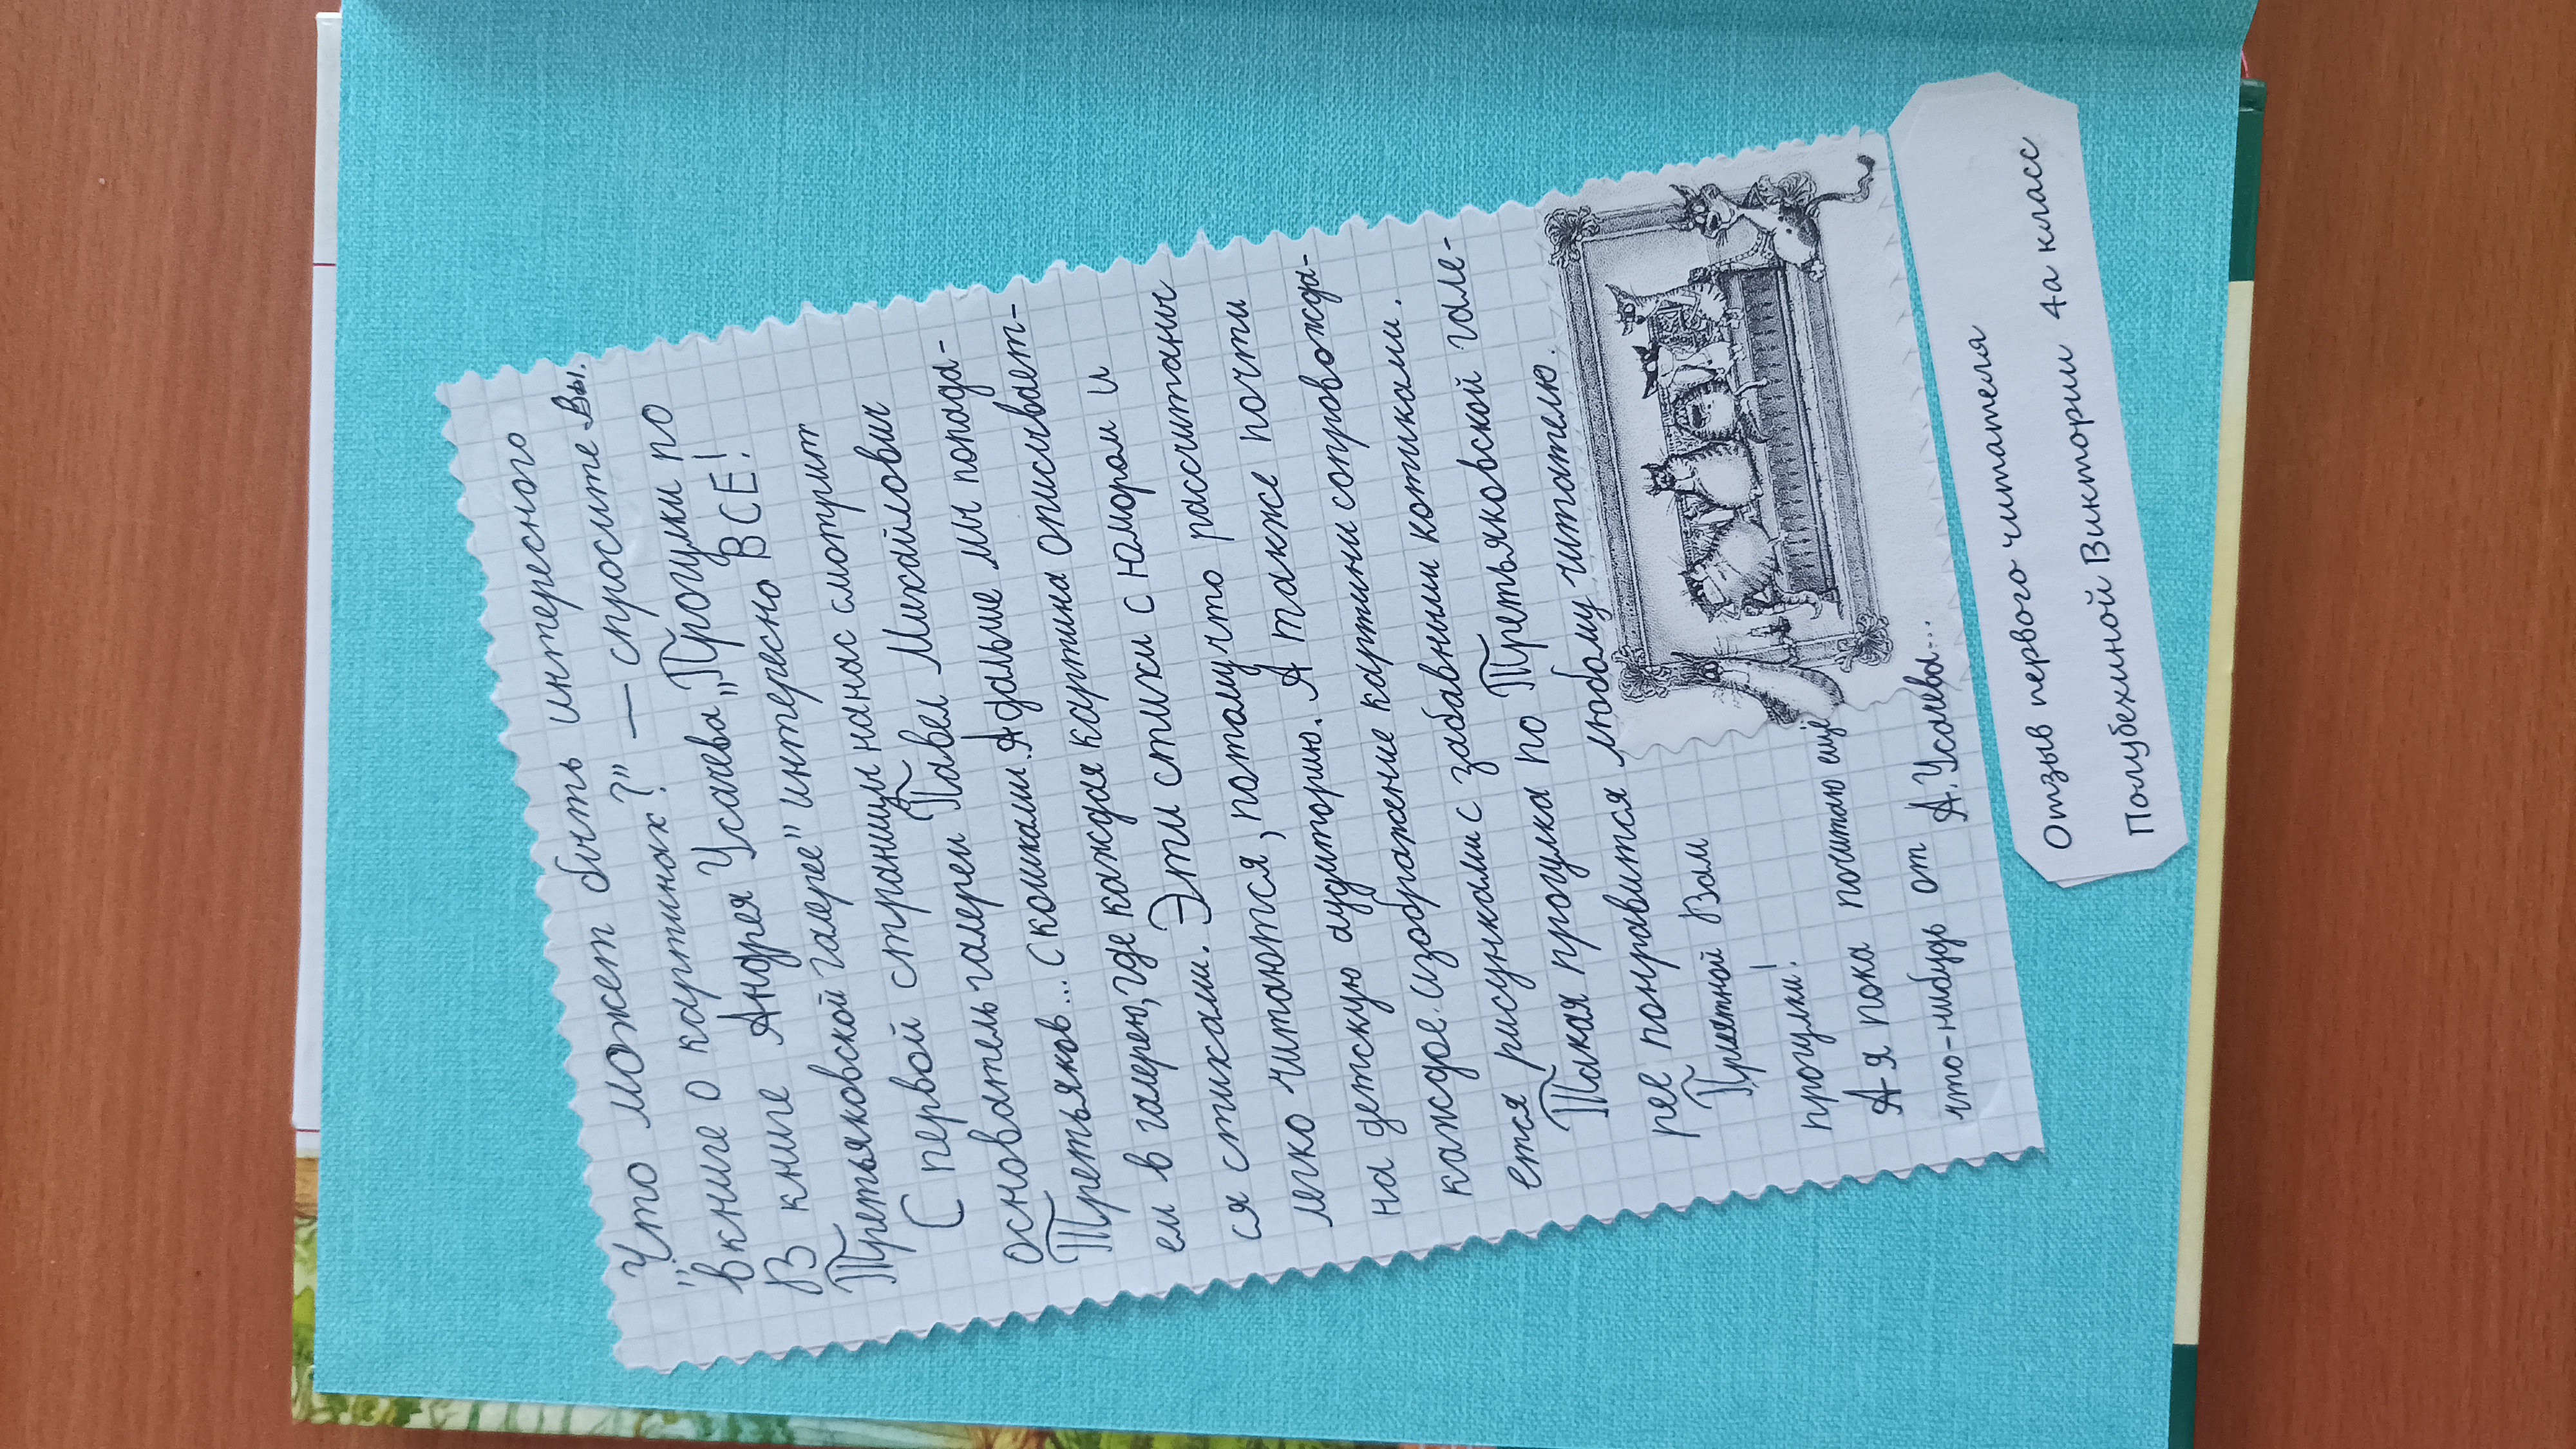 „Что может быть интересного
в книге о картинах?" — спросите Вы.
В книге Андрея Усачева „Прогулки по
Третьяковской галерее" интересно ВСЕ!
С первой страницы на нас смотрит
основатель галереи Павел Михайлович
Третьяков... с кошками. А дальше мы попада-
ем в галерею, где каждая картина описывает-
ся стихами. Эти стихи с юмором и
легко читаются, потому что рассчитаны
на детскую аудиторию. А также почти
каждое изображение картины сопровожда-
ется рисунками с забавными котиками.
Такая прогулка по Третьяковской гале-
рее понравится любому читателю.
Приятной Вам
прогулки!
А я пока почитаю ещё
что-нибудь от А. Усачева...
Отзыв первого читателя
Полубехиной Виктории 4а класс